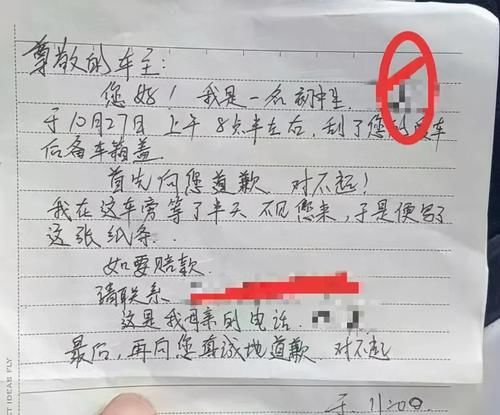 尊敬的车主:
您好!我是一名初中生
于10月27日上午8点半左右,刮了您的
车
后备车箱盖
首先向您道歉 对不起!
我在这车旁等了半天不见您来,于是便写了
这张纸条.
如要赔款
请联系
这是我母亲的电话
最后,再向您真诚地道歉 对不起
IDEAS FLY